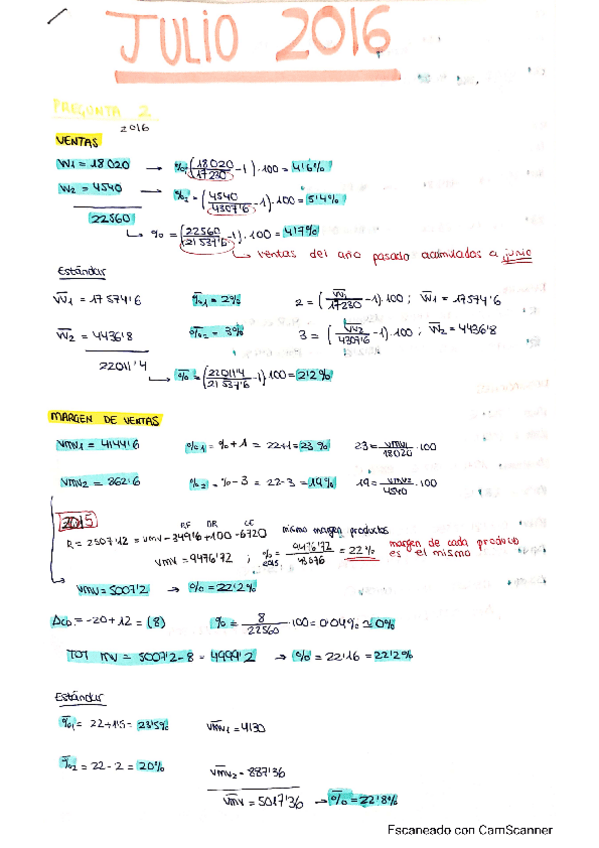 JULIO 2016
PREGUNTA 2
2016
VENTAS
W1 = 18020 → %1 = (18020/17230 - 1)·100 = 4'6%
W2 = 4540 → %2 = (4540/4307'6 - 1)·100 = 5'4%
22560
↳ % = (22560/21537'6 - 1)·100 = 4'7%
↳ ventas del año pasado acumulados a junio
Estándar
W̅1 = 17574'6 %̅1 = 2% 2 = (W̅1/17230 - 1)·100 ; W̅1 = 17574'6
W̅2 = 4436'8 %̅2 = 3% 3 = (W̅2/4307'6 - 1)·100 ; W̅2 = 4436'8
22011'4
↳ %̅ = (22011'4/21537'6 - 1)·100 = 2'2%
MARGEN DE VENTAS
VMV1 = 4144'6 %1 = % + 1 = 22+1 = 23% 23 = VMV1/18020 ·100
VMV2 = 862'6 %2 = % - 3 = 22-3 = 19% 19 = VMV2/4540 ·100
2015
R = 2507'12 = VMV - 349'6 + 100 - 6720 mismo margen productos
VMV = 9476'72 ; % = 9476'72/43076 = 22% margen de cada producto
es el mismo
VMV = 5007'2 → % = 22'2%
Δco. = -20 + 12 = (8) % = 8/22560 ·100 = 0'04% ≃ 0%
TOT MV = 5007'2 - 8 = 4999'2 → % = 22'16 = 22'2%
Estándar
%̅1 = 22 + 1'5 = 23'5% V̅M̅V̅1 = 4130
%̅2 = 22 - 2 = 20% V̅M̅V̅2 = 887'36
V̅M̅V̅ = 5017'36 → %̅ = 22'8%
Escaneado con CamScanner